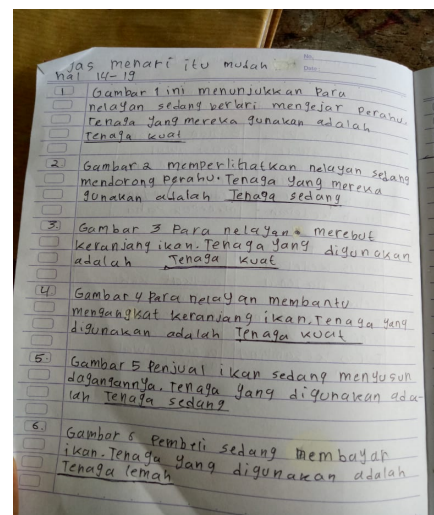 gas menari itu mudah
hal 14-19
No.
Date:
1 Gambar 1 ini menunjukkan Para
nelayan sedang berlari mengejar perahu.
Tenaga yang mereka gunakan adalah
Tenaga kuat
2 Gambar 2 memperlihatkan nelayan sedang
mendorong perahu. Tenaga yang mereka
gunakan adalah Tenaga sedang
3. Gambar 3 Para nelayan merebut
keranjang ikan. Tenaga yang digunakan
adalah Tenaga kuat
4 Gambar 4 Para nelayan membantu
mengangkat keranjang ikan. Tenaga yang
digunakan adalah Tenaga kuat
5. Gambar 5 Penjual ikan sedang menyusun
dagangannya. Tenaga yang digunakan ada-
lah Tenaga sedang
6. Gambar 6 Pembeli sedang membayar
ikan. Tenaga yang digunakan adalah
Tenaga lemah